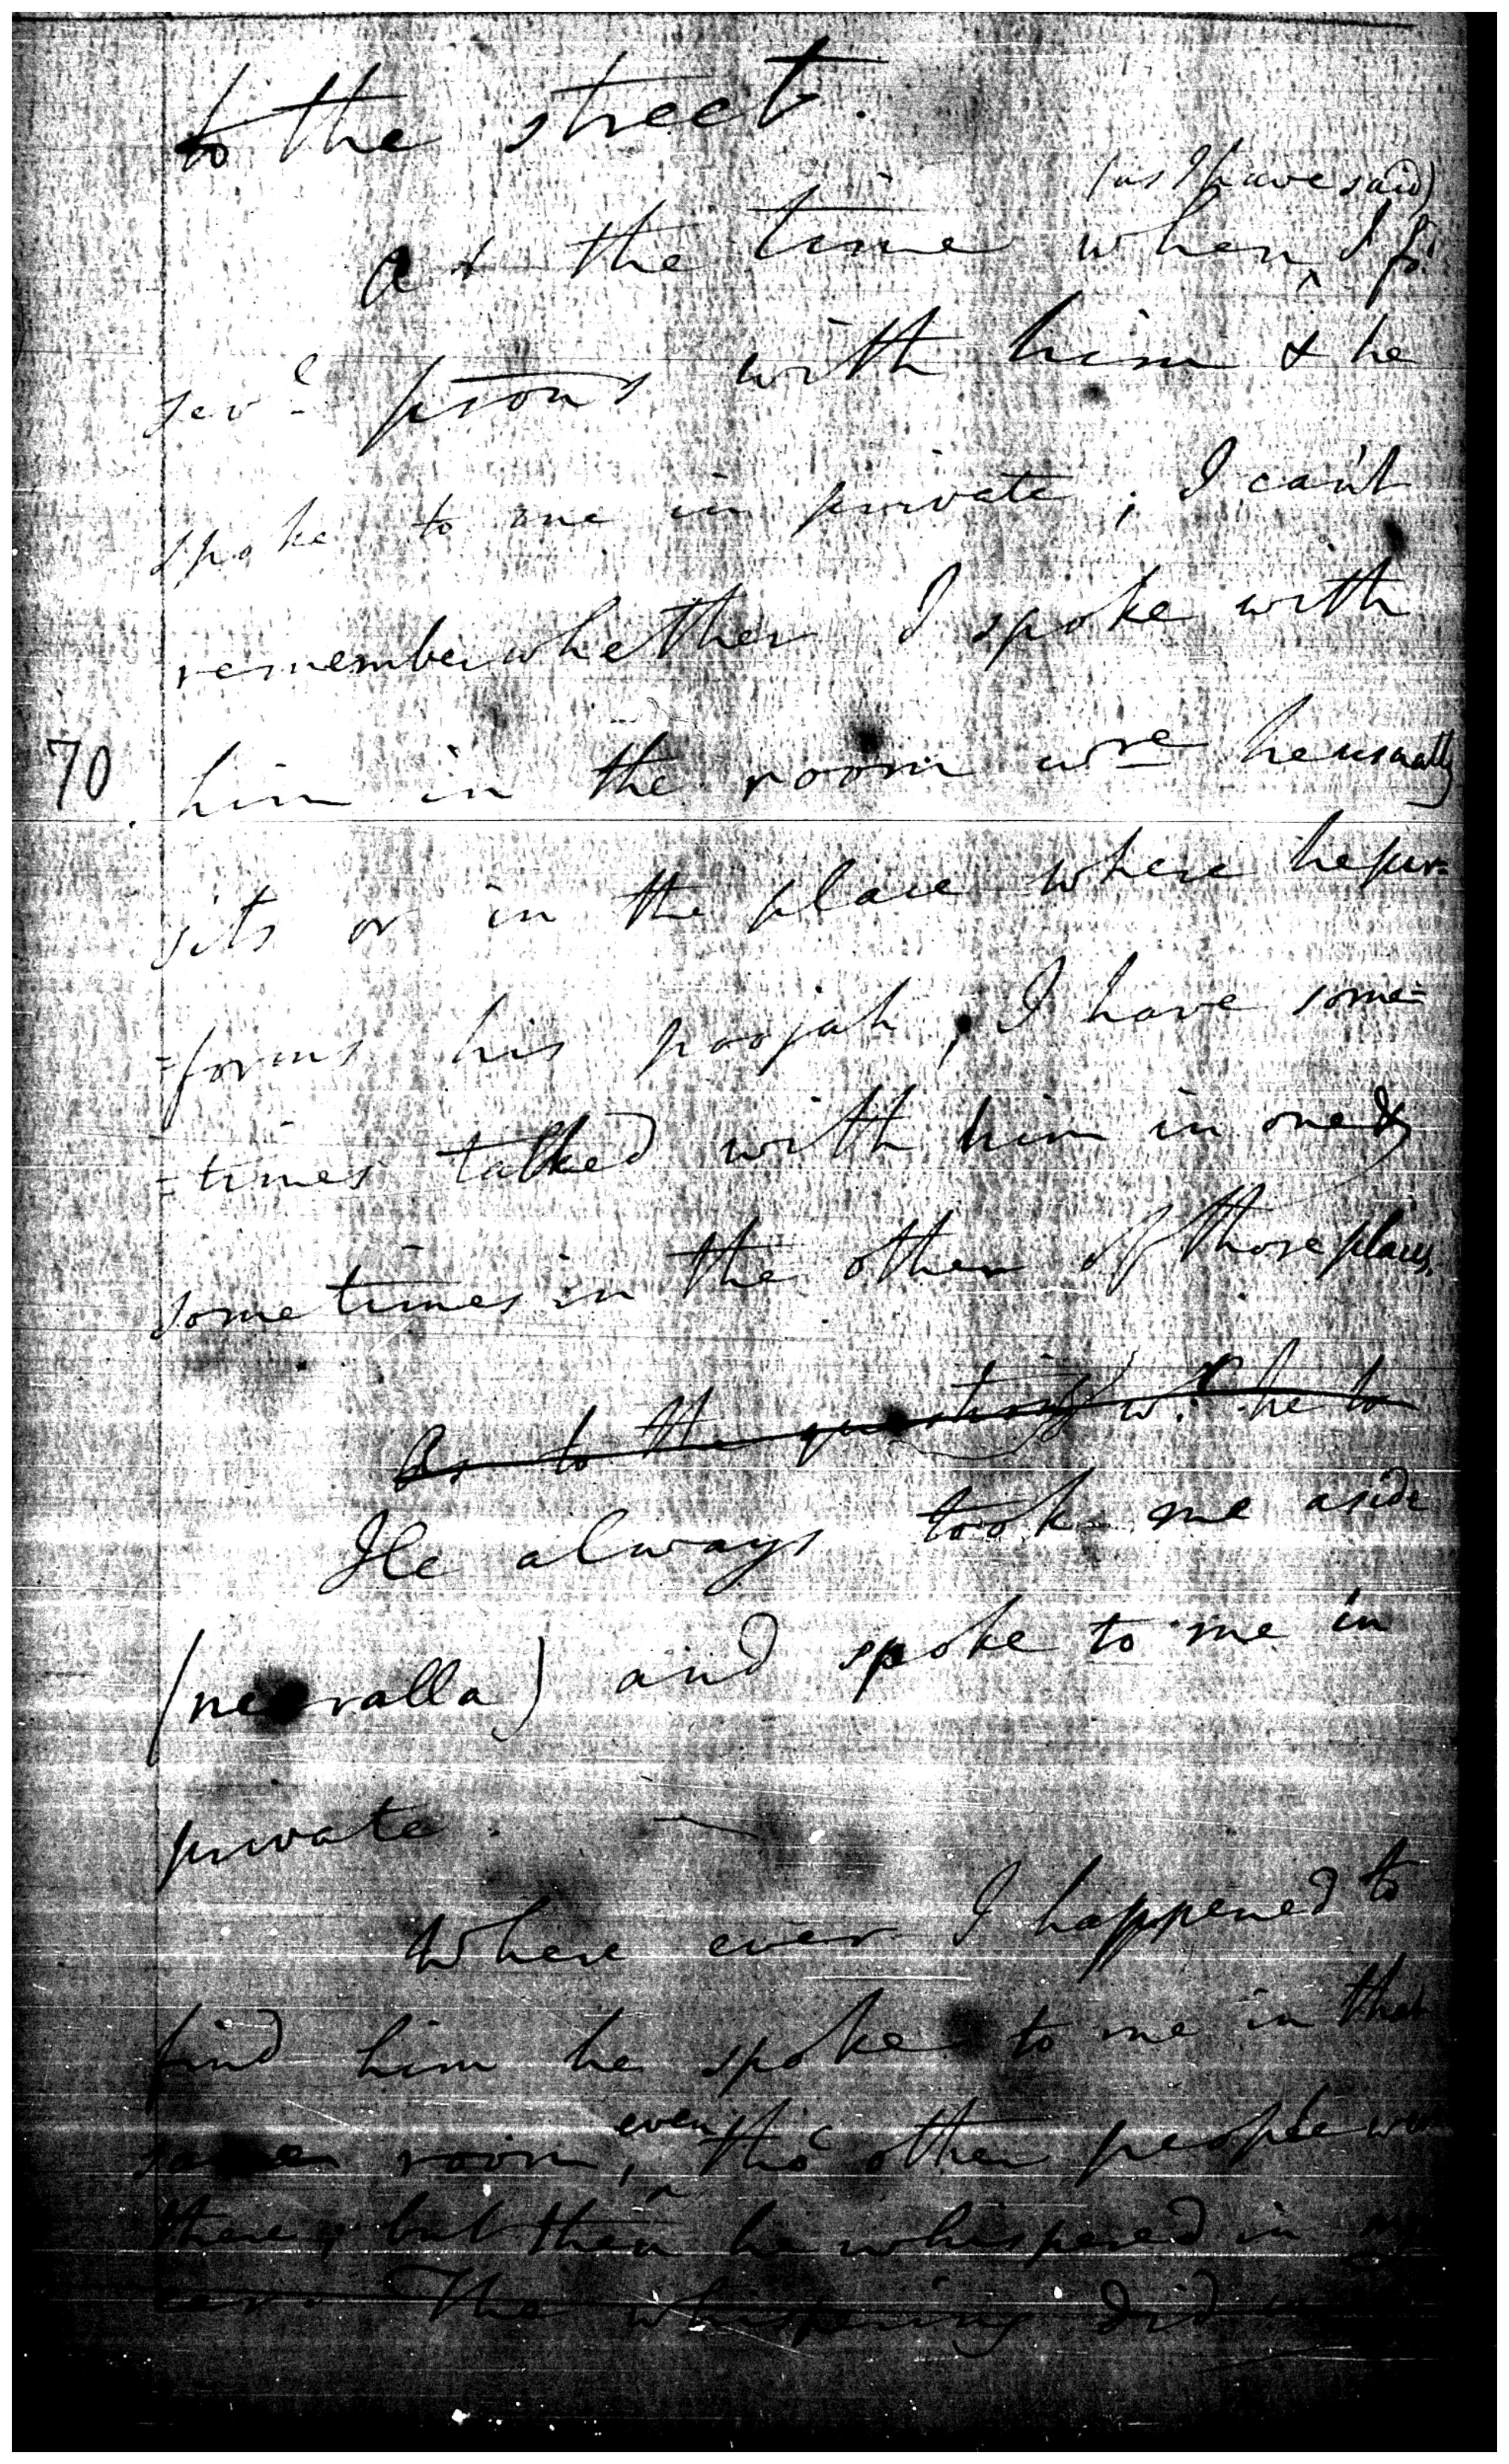 to the street.
(as I have said)
At the time when, I fd.
sevl. psons with him & he
spoke to me in private, I can't
remember whether I spoke with
70 him in the room wre he usually
sits or in the place where he per-
=forms his poojah, I have some-
=times talked with him in one &
sometimes in the other of those places.
As to the questions wh. he to
He always took me aside
(neeralla) and spoke to me in
private.
Where ever I happened to
find him he spoke to me in that
same room, even tho' other people were
there, but then he whispered in my
ear. The whispering did